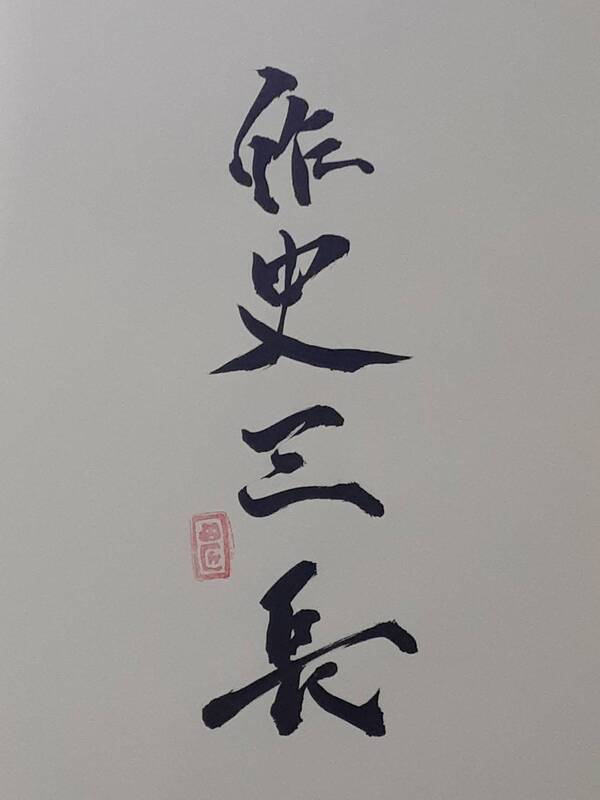 作史三長